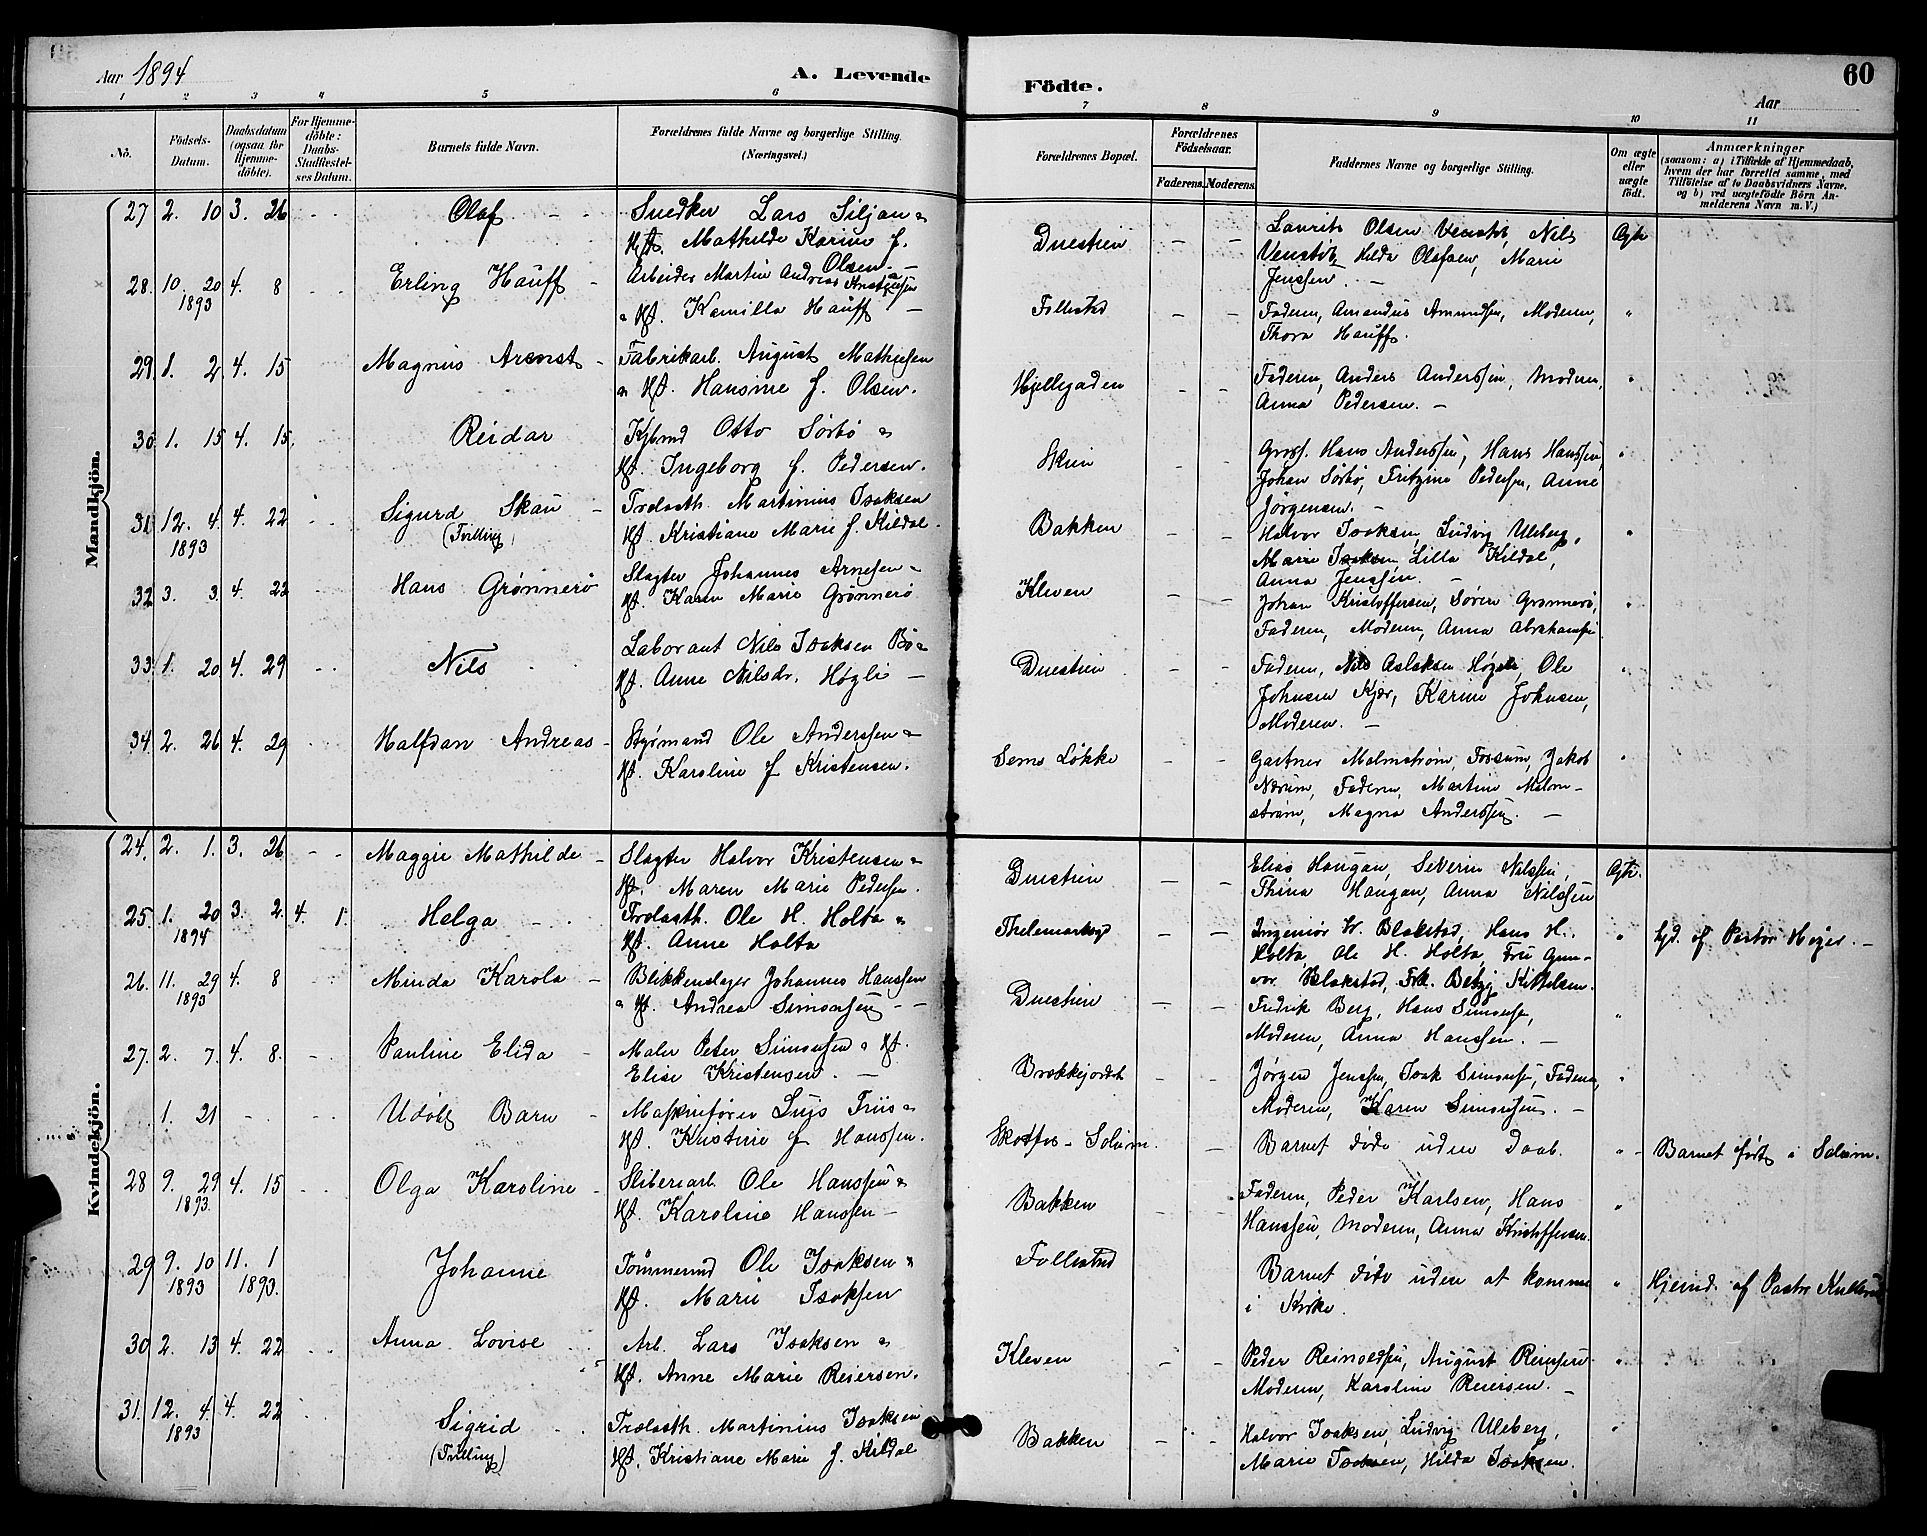 Aar 1894
A. Levende Födte.
60
Aar
1 2 3 4 5 6 7 8 9 10 11
No.
Födsels-Datum.
Daabsdatum (ogsaa for Hjemme-döbte).
For Hjemme-döbte: Daabs-Stadfæstel-ses Datum.
Barnets fulde Navn.
Forældrenes fulde Navne og borgerlige Stilling. (Næringsvei.)
Forældrenes Bopæl.
Forældrenes Födselsaar.
Faderens. Moderens.
Faddernes Navne og borgerlige Stilling.
Om ægte eller uægte födt.
Anmærkninger (saasom: a) i Tilfælde af Hjemmedaab, hvem der har forrettet samme, med Tilföielse af to Daabsvidners Navne. og b) ved uægtefödte Börn An-melderens Navn m. V.)
Mandkjön.
27 2. 10 3. 26 Olaf Snedker Lars Siljan &
Hst. Mathilde Karine f. Olsen
Duestien
Laurits Olsen Venstøb, Nils
Venstøb, Hilda Olafsen, Marie
Jenssen.
Ægte
28. 10. 20 1893 4. 8 Erling Hauff Arbeider Martin Andreas Kristensen
& Hst. Kamilla Hauff
Follestad
Faderen, Amandus Amundsen, Moderen,
Thora Hauff.
29 1. 2 4. 15 Magnus Arenst Fabrikarb. August Mathisen
& Hst. Hansine f. Olsen.
Hjellegaden
Faderen, Anders Anderssen, Moderen,
Anna Pedersen.
30 1. 15 4. 15. Reidar Kjbmd Otto Sørbø &
Hst. Ingeborg f. Pedersen.
Skien
Gross. Hans Anderssen, Hans Hanssen,
Johan Sörbö, Fritzine Pedersen, Anne
Jörgensen.
31. 12. 4 1893 4. 22 Sigurd Skau (Tvilling) Trælasth. Martinius Isaksen
Hst. Kristiane Marie f. Kildal.
Bakken
Halvor Isaksen, Ludvig Uleberg,
Marie Isaksen, Lilla Kildal,
Anna Jenssen.
32 3. 3. 4. 22 Hans Grønnerø Slagter Johannes Arnesen &
Hst. Karen Marie Grønnerø
Kleven
Johan Kristoffersen, Søren Grønnerø,
Faderen, Moderen, Anna Abrahamsen
33 1. 20 4. 29 Nils Laborant Nils Isaksen Bø &
Hst. Anne Nilsdr. Høgli
Duestien
Faderen, Nils Aslaksen Høgli, Ole
Johnsen Kjær, Karine Johnsen,
Moderen.
34. 2. 26 4. 29 Halfdan Andreas Styrmand Ole Anderssen &
Hst. Karoline f Kristensen.
Sems Løkke
Gartner Malmstrøm, Fossum, Jakob
Nærum, Faderen, Martine Malm-
strøm, Magna Anderssen.
Kvindekjön.
24. 2. 1. 3. 26 Maggie Mathilde Slagter Halvor Kristensen &
Hst. Maren Marie Pedersen.
Duestien
Elias Haugan, Severin Nilssen,
Thina Haugan, Anna Nilssen
Ægte.
25. 1. 20 1894 3. 2. 4. 1. Helga Trælasth. Ole H. Holta &
Hst. Anne Holta
Thelemarksgd
Ingeniør Kr. Blakstad, Hans H.
Holta, Ole H. Holta, Fru Gun-
vor Blakstad, Frk. Betzy Kittelsen.
Hjd. af Pastor Høyer.
26. 11. 29 1893 4. 8 Minda Karola Blikkenslager Johannes Hanssen
& Hst. Andrea Simonsen
Duestien
Fredrik Berg, Hans Simonsen,
Moderen, Anna Hanssen.
27. 2. 7. 4. 8. Pauline Elida Maler Peter Simonsen & Hst.
Elise Kristensen.
Brækkejordet
Jørgen Jenssen, Isak Simonsen, Faderen,
Moderen, Karen Simonsen.
1. 21 Udøbt Barn Maskinfører Lujs Friis &
Hst. Kristine f Hanssen.
Skotfos - Solum.
Barnet døde uden Daab.
Barnet født i Solum.
28 9. 29 1893. 4. 15 Olga Karoline Sliberiarb. Ole Hanssen &
Hst. Karoline Hanssen
Bakken
Faderen, Peder Karlsen, Hans
Hanssen, Moderen, Anna Kristoffersen.
29 9. 10 1893 11. 1 1893. Johanne Tømmermd Ole Isaksen &
Hst. Marie Isaksen
Follestad
Barnet døde uden at komme
i Kirke.
Hjemd. af Pastor
30 2. 13 4. 22 Anna Lovise Arb. Lars Isaksen &
Hst. Anne Marie Reiersen.
Kleven
Peder Reinoldsen, August Reiersen
Moderen, Karoline Reiersen.
31. 12. 4 1893 4. 22 Sigrid (Tvilling) Trælasth. Martinius Isaksen
Hst. Kristiane Marie f. Kildal
Bakken
Halvor Isaksen, Ludvig Uleberg,
Marie Isaksen, Hilda Isaksen.